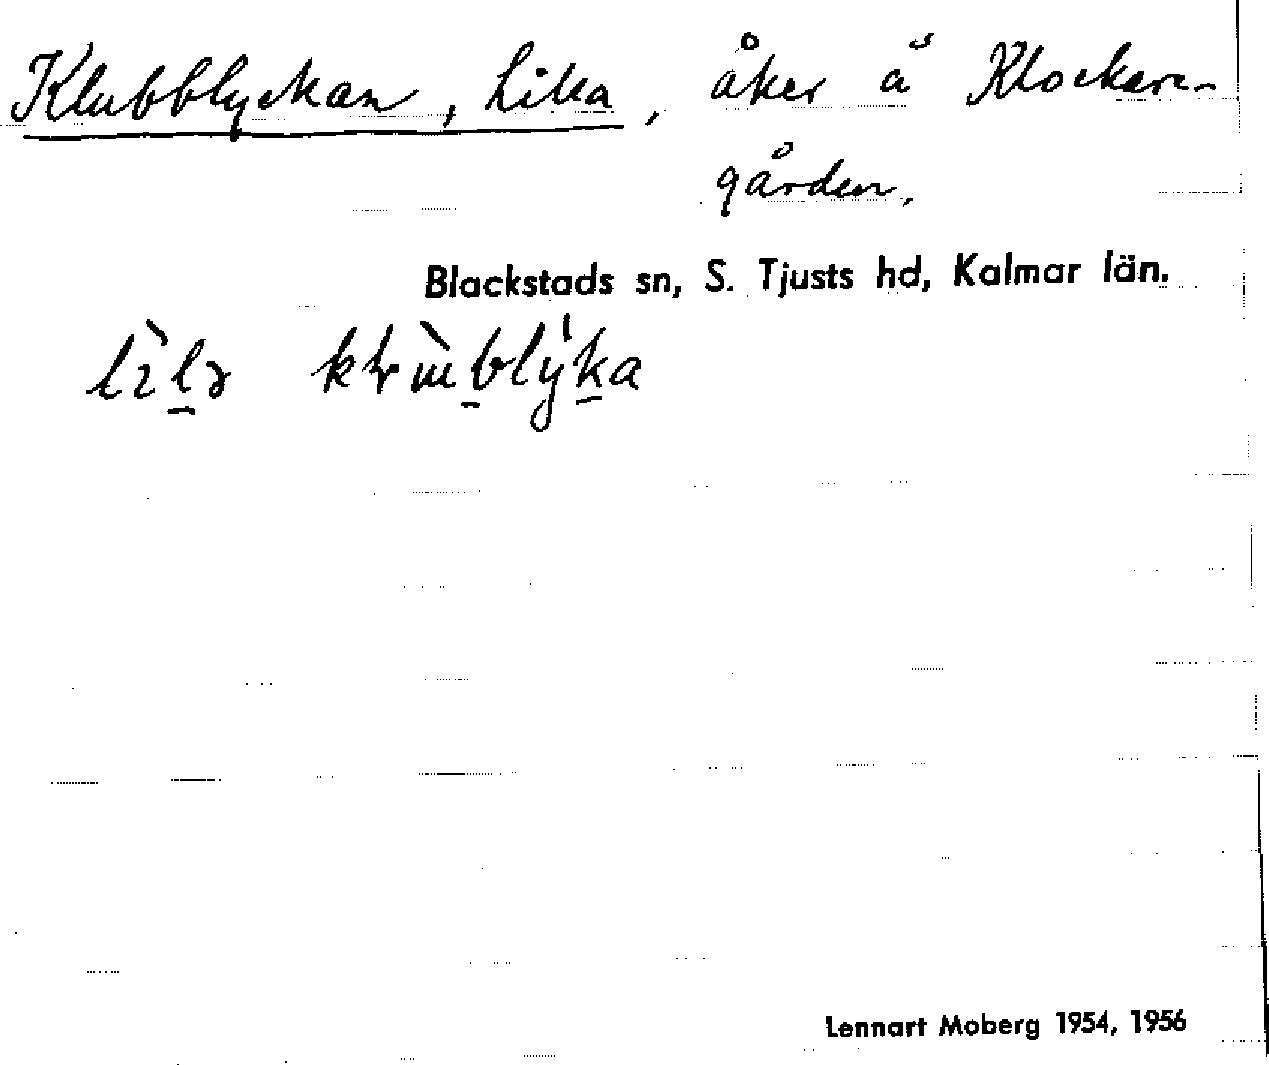 Klubblyckan, Lilla, åker å Klockare-
gården.
Blackstads sn, S. Tjusts hd, Kalmar län.
Lennart Moberg 1954, 1956